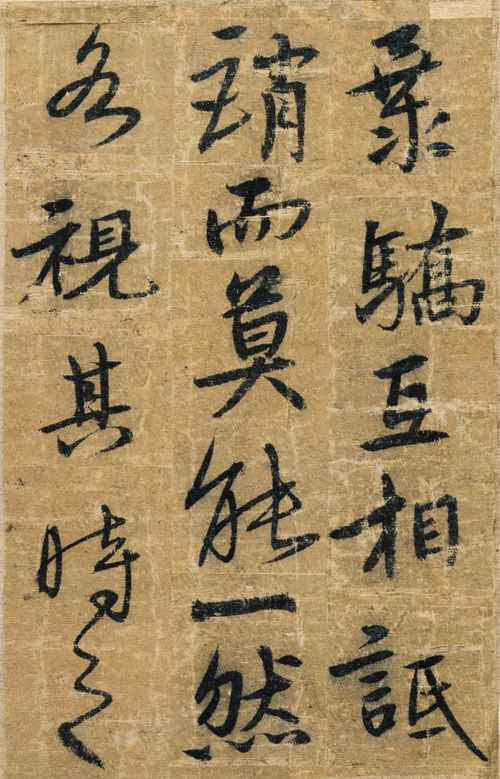 驕互相詆
誚而莫能一然
各視其時之